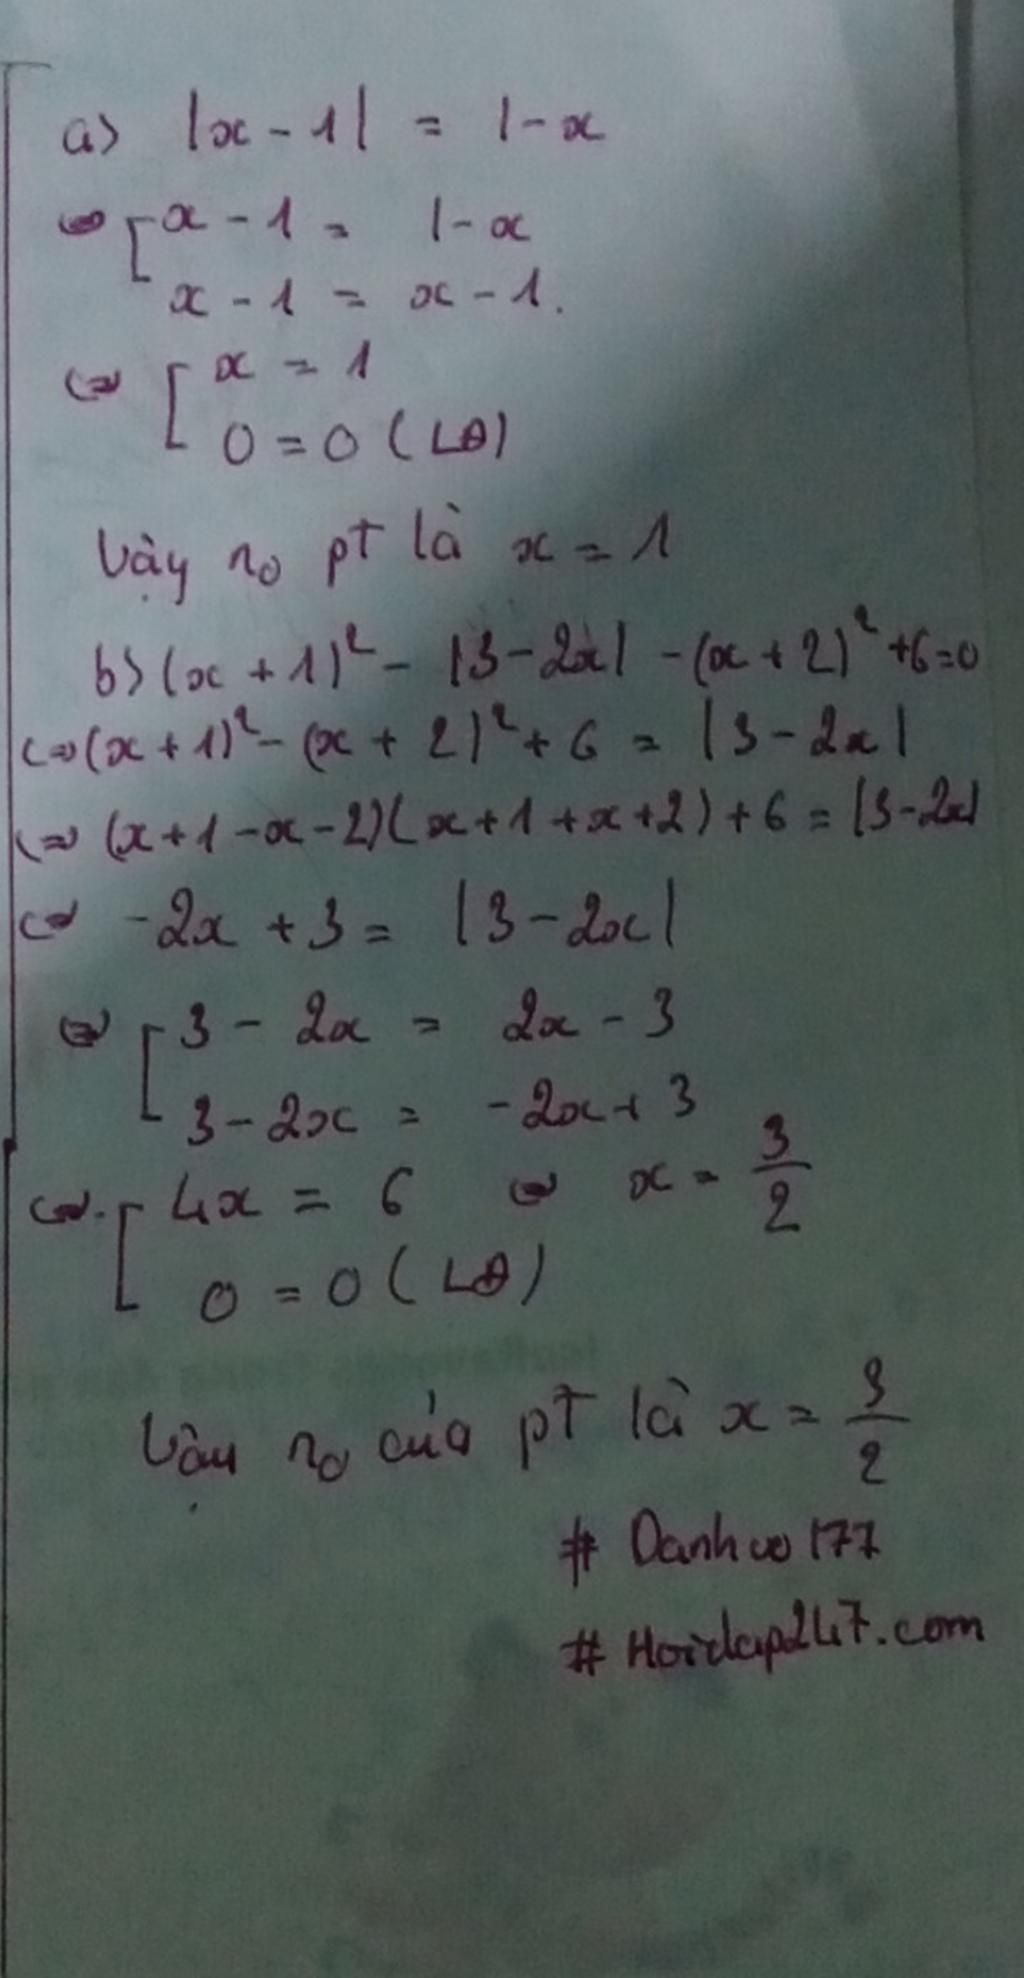 a) |x - 1| = 1 - x
⇔ [ x - 1 = 1 - x
x - 1 = x - 1.
⇔ [ x = 1
0 = 0 (LĐ)
Vậy no pt là x = 1
b) (x + 1)² - |3 - 2x| - (x + 2)² + 6 = 0
⇔ (x + 1)² - (x + 2)² + 6 = |3 - 2x|
⇔ (x + 1 - x - 2)(x + 1 + x + 2) + 6 = |3 - 2x|
⇔ -2x + 3 = |3 - 2x|
⇔ [ 3 - 2x = 2x - 3
3 - 2x = -2x + 3
⇔ [ 4x = 6 ⇔ x = 3/2
0 = 0 (LĐ)
Vậy no của pt là x = 3/2
# Danhvo177
# Hoidap247.com